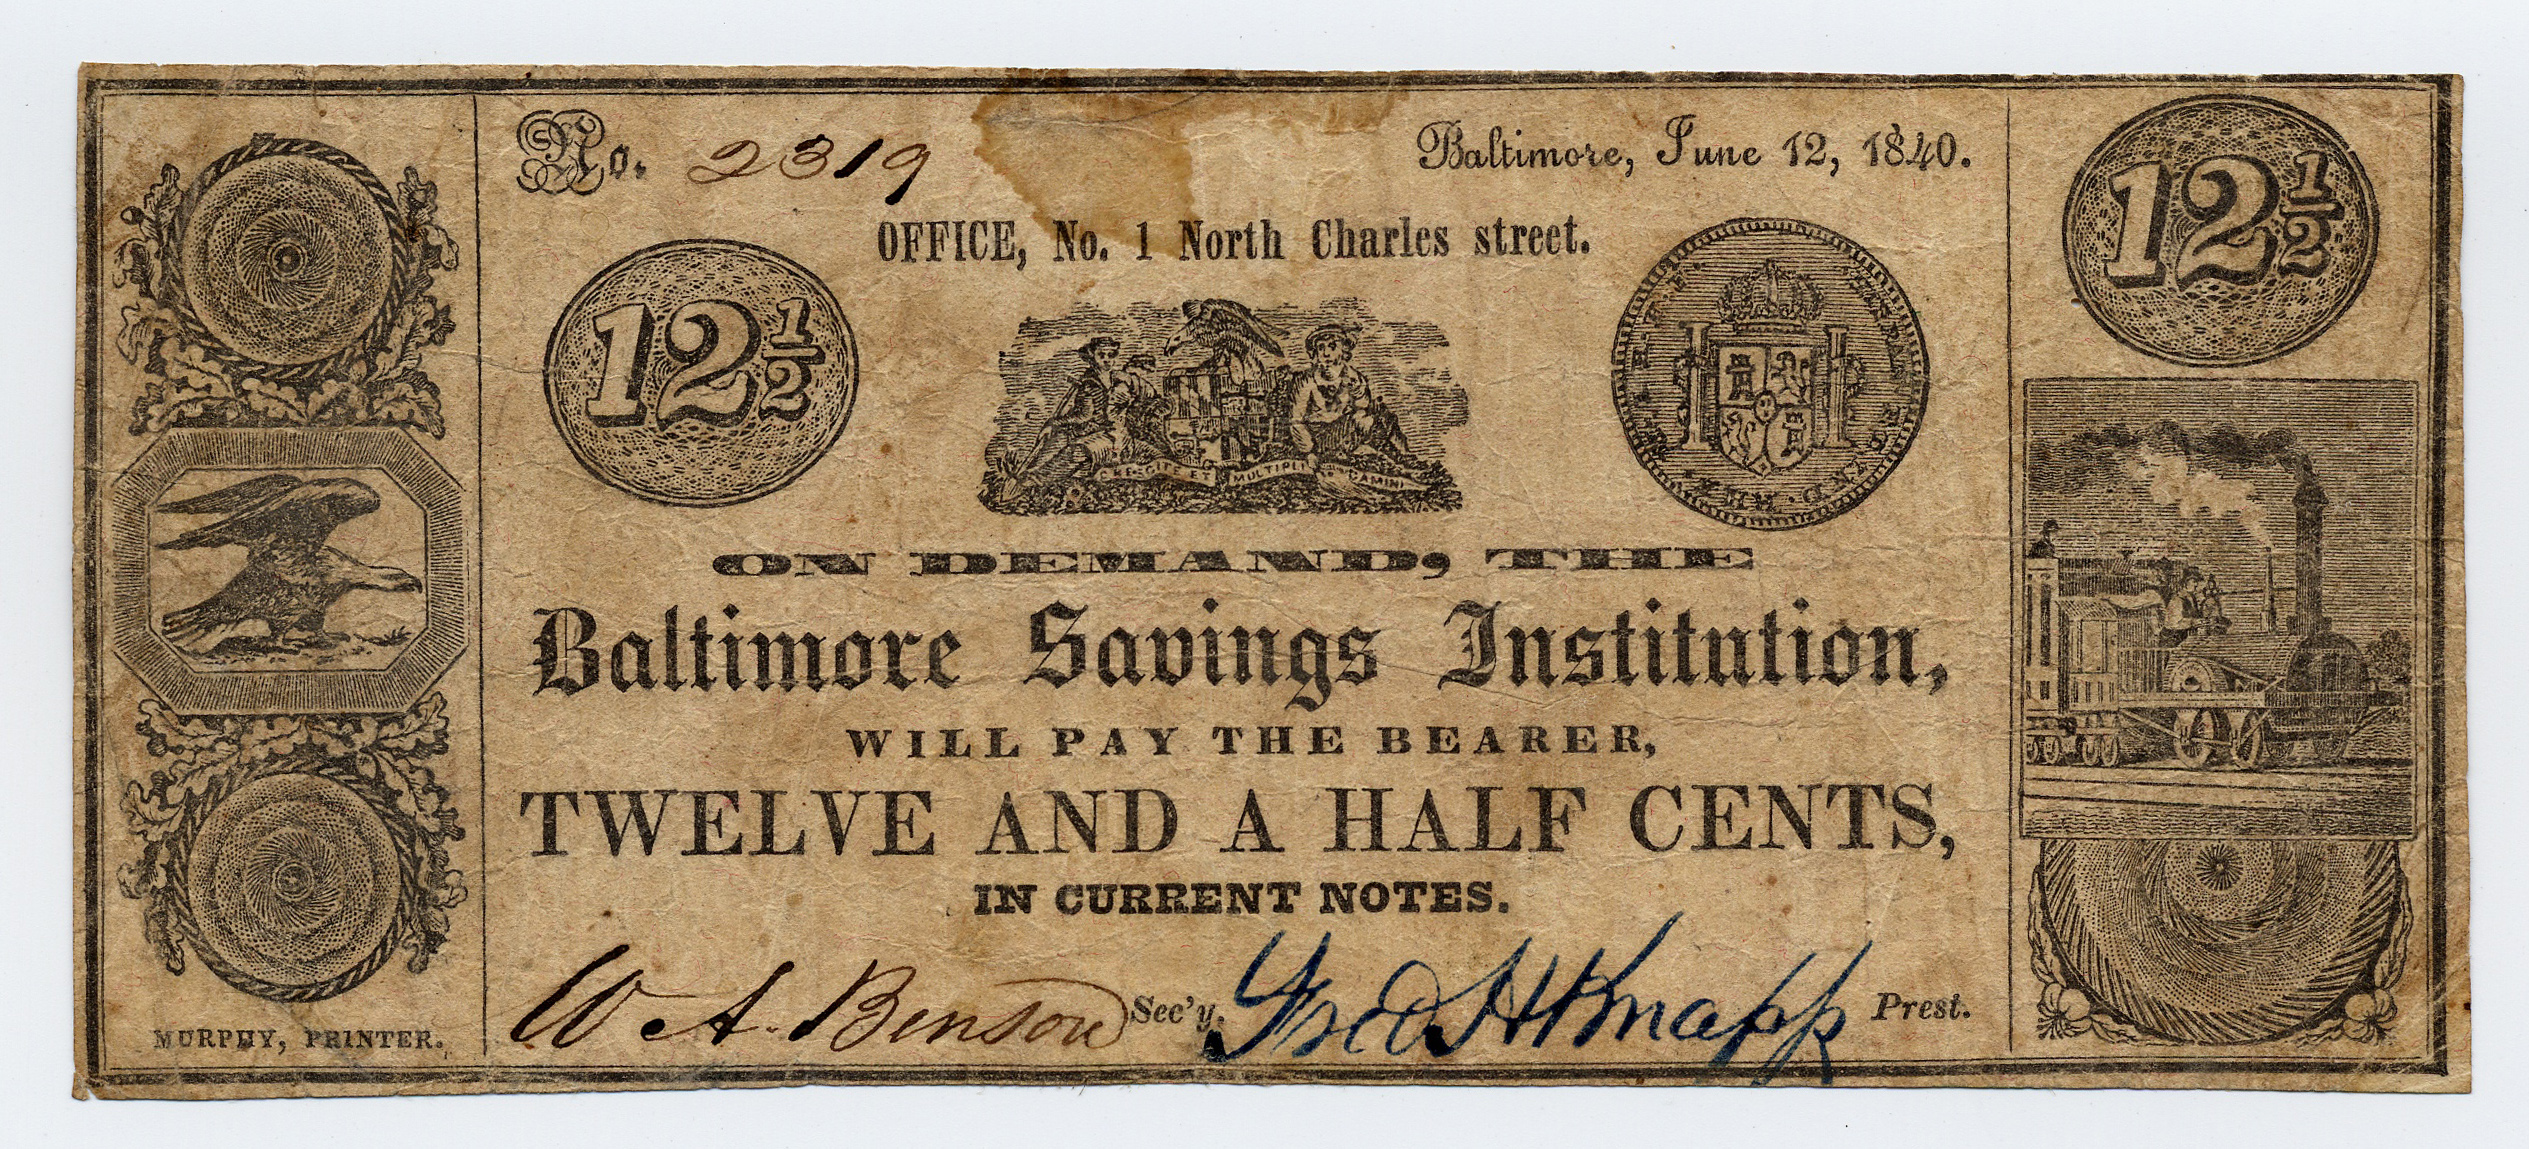 No. 2319
Baltimore, June 12, 1840.
OFFICE, No. 1 North Charles street.
12 1/2
12 1/2
CRESCITE ET MULTIPLICAMINI
ON DEMAND, THE
Baltimore Savings Institution,
WILL PAY THE BEARER,
TWELVE AND A HALF CENTS,
IN CURRENT NOTES.
W. A. Benson Sec'y. Fred H Knapp Prest.
MURPHY, PRINTER.